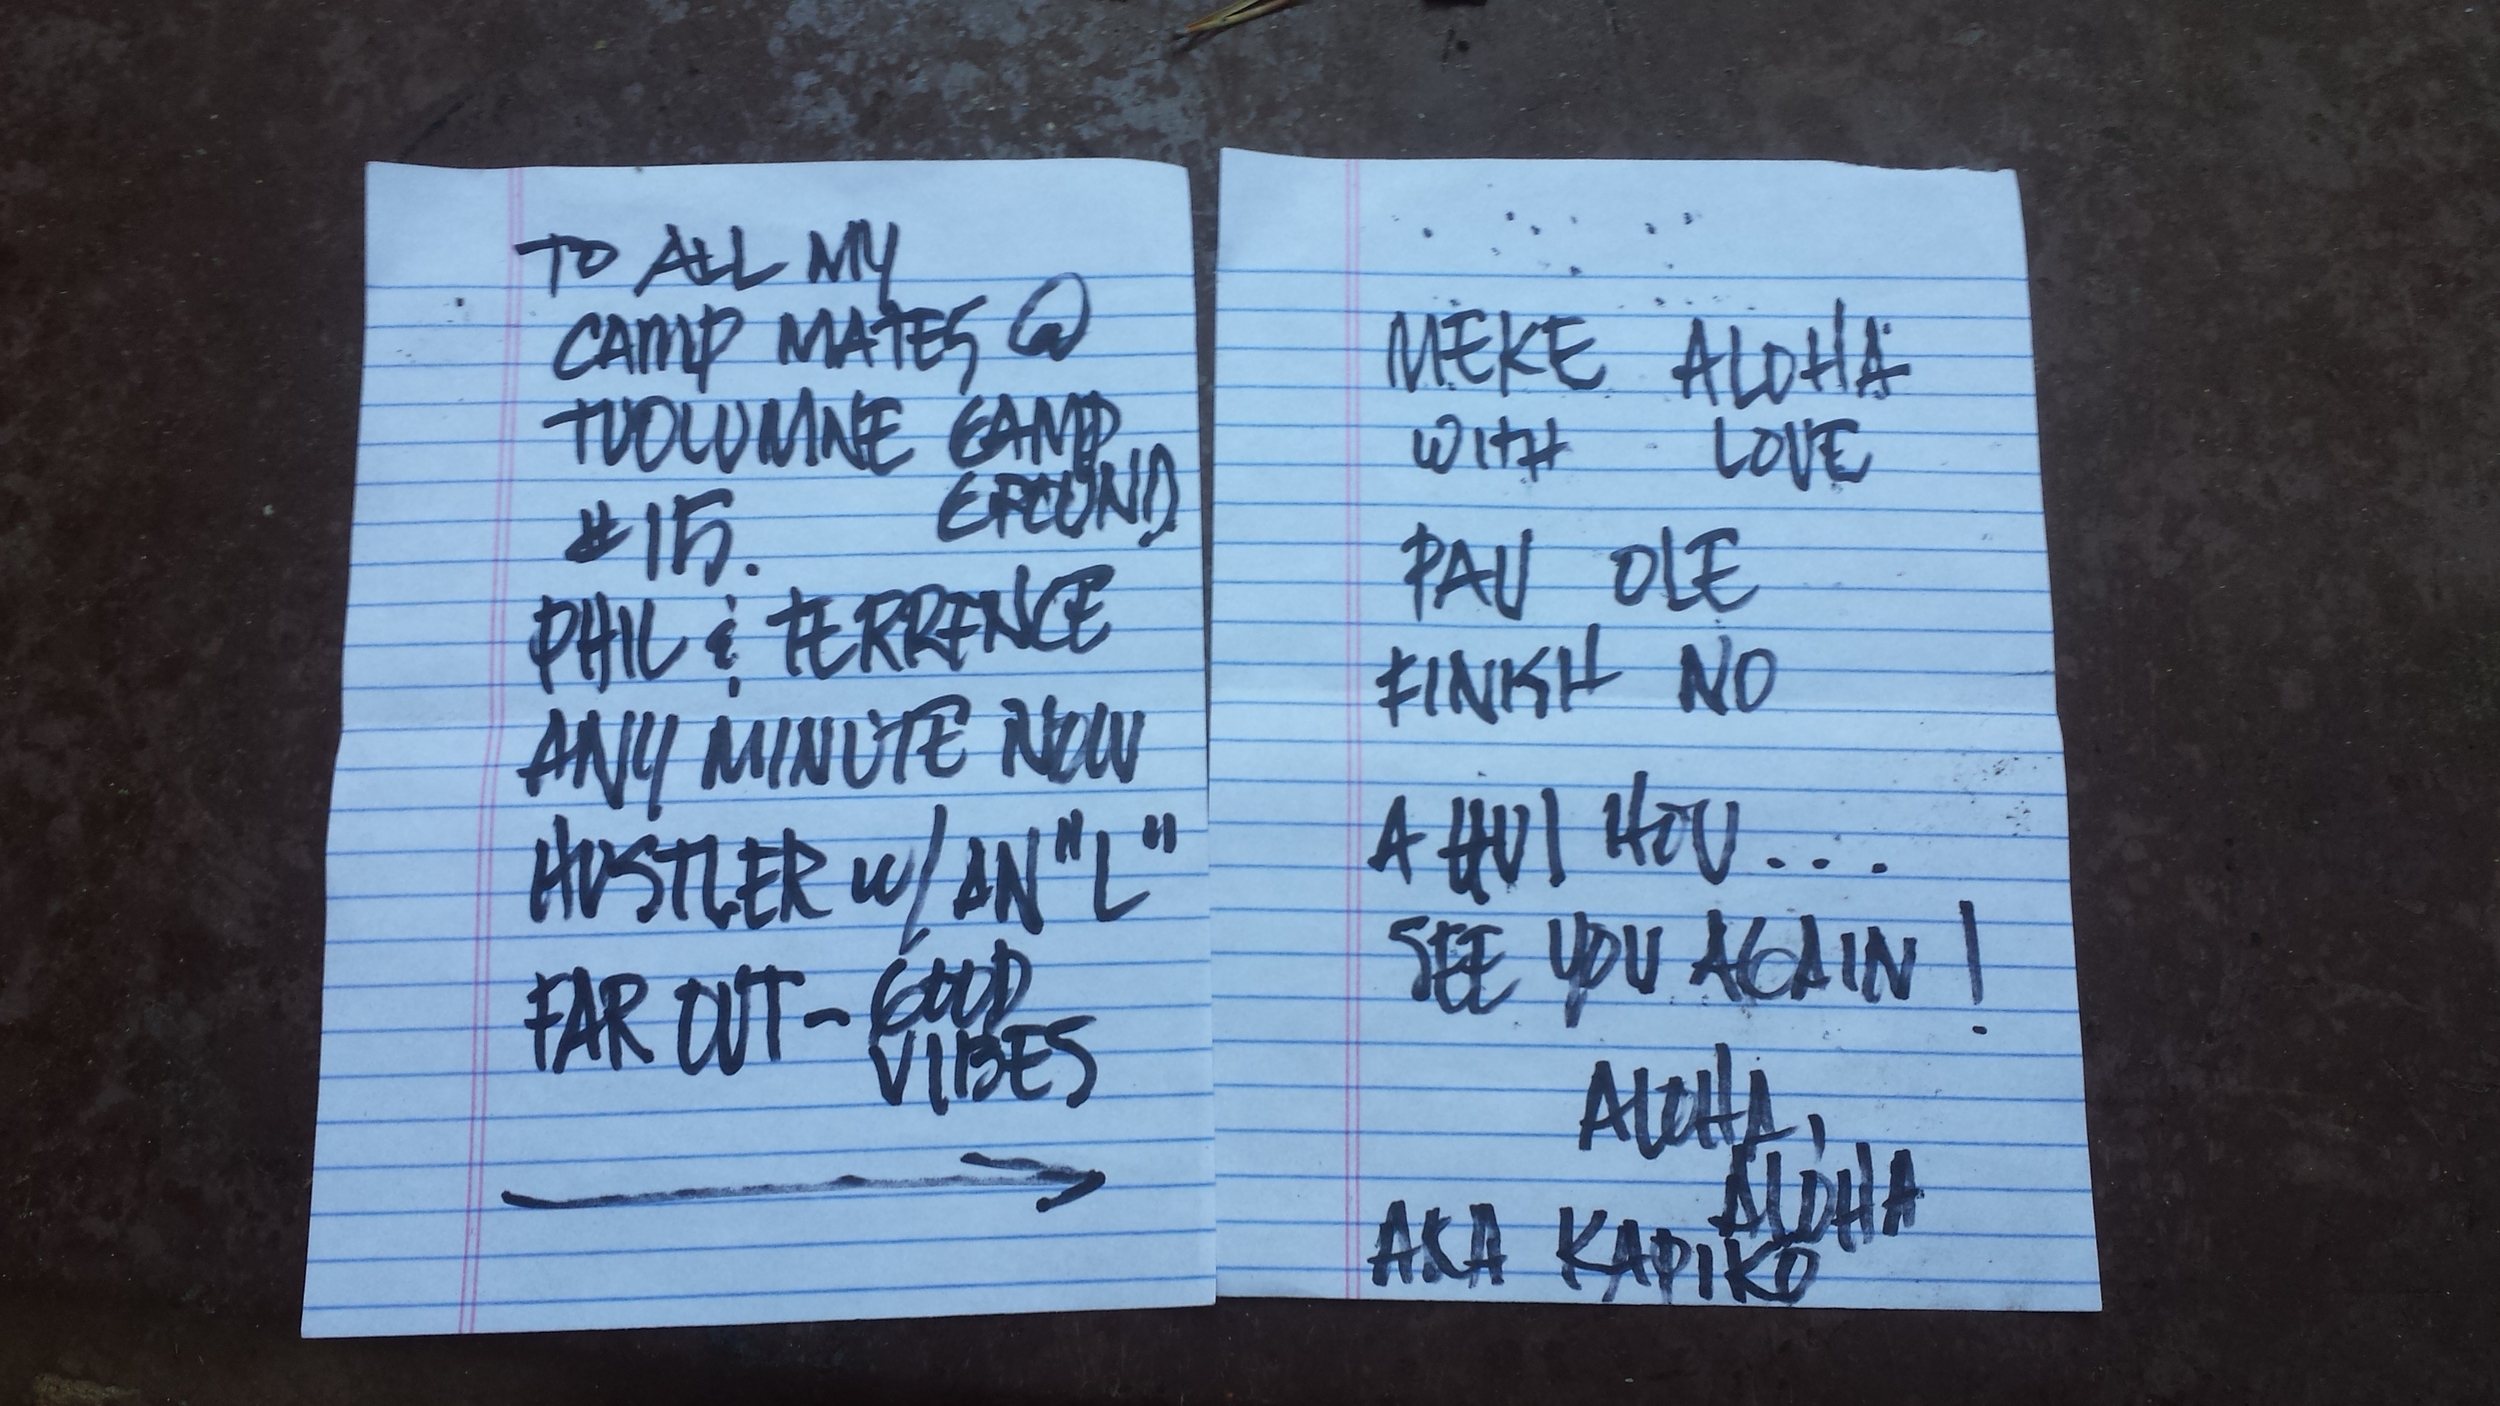 TO ALL MY
CAMP MATES @
TUOLUMNE CAMP
GROUND
#15.
PHIL & TERRENCE
ANY MINUTE NOW
HUSTLER W/ AN "L"
FAR OUT - GOOD
VIBES
MEKE ALOHA
WITH LOVE
PAU OLE
FINISH NO
A HUI HOU...
SEE YOU AGAIN!
ALOHA,
ALOHA
AKA KAPIKO